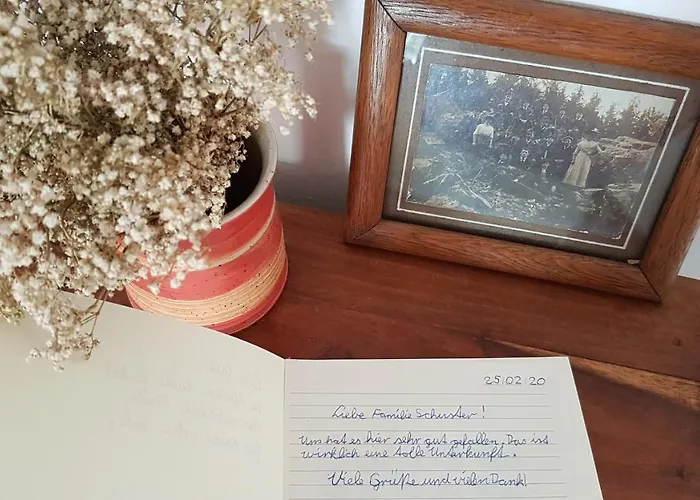 25|02|20
Liebe Familie Schuster!
Uns hat es hier sehr gut gefallen. Das ist
wirklich eine tolle Unterkunft.
Viele Grüße und vielen Dank!